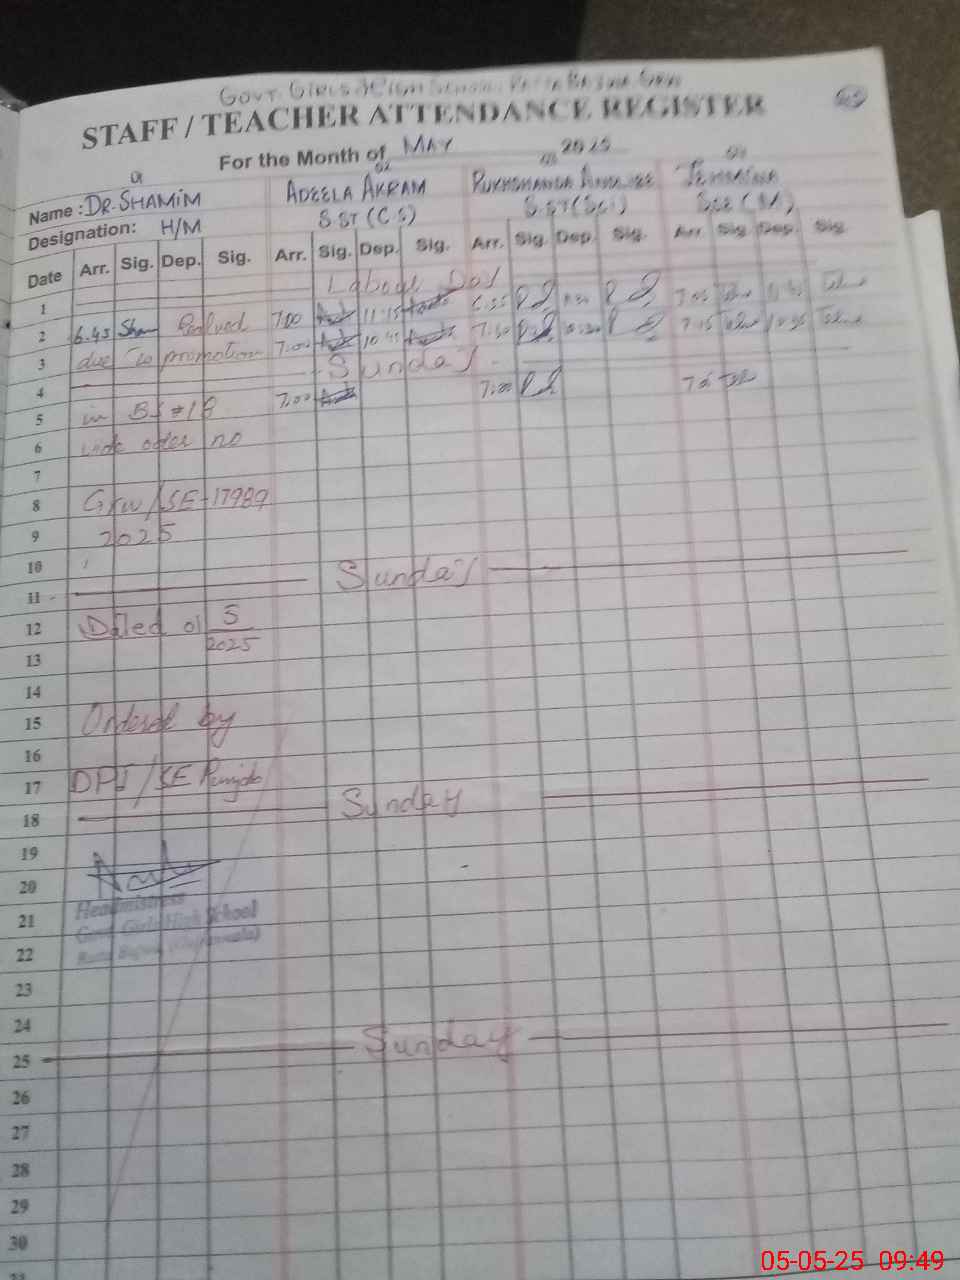 GOVT. GIRLS HIGH SCHOOL
STAFF / TEACHER ATTENDANCE REGISTER
For the Month of MAY 2025
01 02 03 04
Name : DR. SHAMIM ADEELA AKRAM RUKHSHANDA
Designation: H/M S.ST (C.S) S.ST (Sci)
Date Arr. Sig. Dep. Sig. Arr. Sig. Dep. Sig. Arr. Sig. Dep. Sig. Arr. Sig. Dep. Sig.
1 Labour Day
2 6.45 Sham Relived 7.00 11.15 6.55 7.05
3 due to promotion 7.00 10.45 7.15
4 Sunday
5 in BS #18 7.00 7.00
6 vide oder no
7
8 Grw/SE-17989
9 2025
10
11 Sunday
12 Dated 01 5
2025
13
14
15 Ordered by
16
17 DPI/SE Punjab
18 Sunday
19
20
Headmistress
21
Govt. Girls High School
22
23
24
25 Sunday
26
27
28
29
30
31
05-05-25 09:49